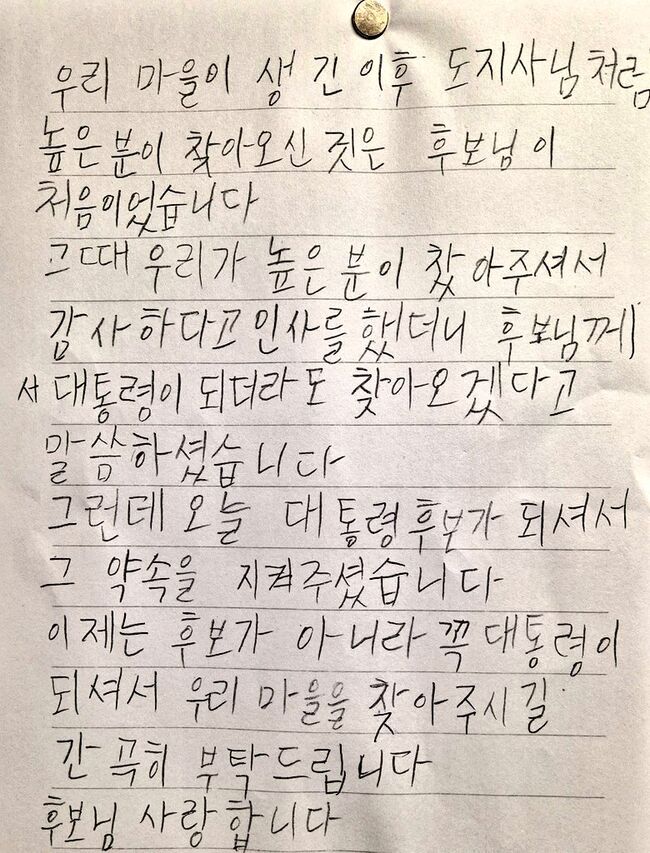 우리 마을이 생긴 이후 도지사님처럼
높은 분이 찾아오신 것은 후보님이
처음이었습니다
그때 우리가 높은 분이 찾아주셔서
감사하다고 인사를 했더니 후보님께
서 대통령이 되더라도 찾아오겠다고
말씀하셨습니다
그런데 오늘 대통령후보가 되셔서
그 약속을 지켜주셨습니다
이제는 후보가 아니라 꼭 대통령이
되셔서 우리 마을을 찾아주시길
간곡히 부탁드립니다
후보님 사랑합니다